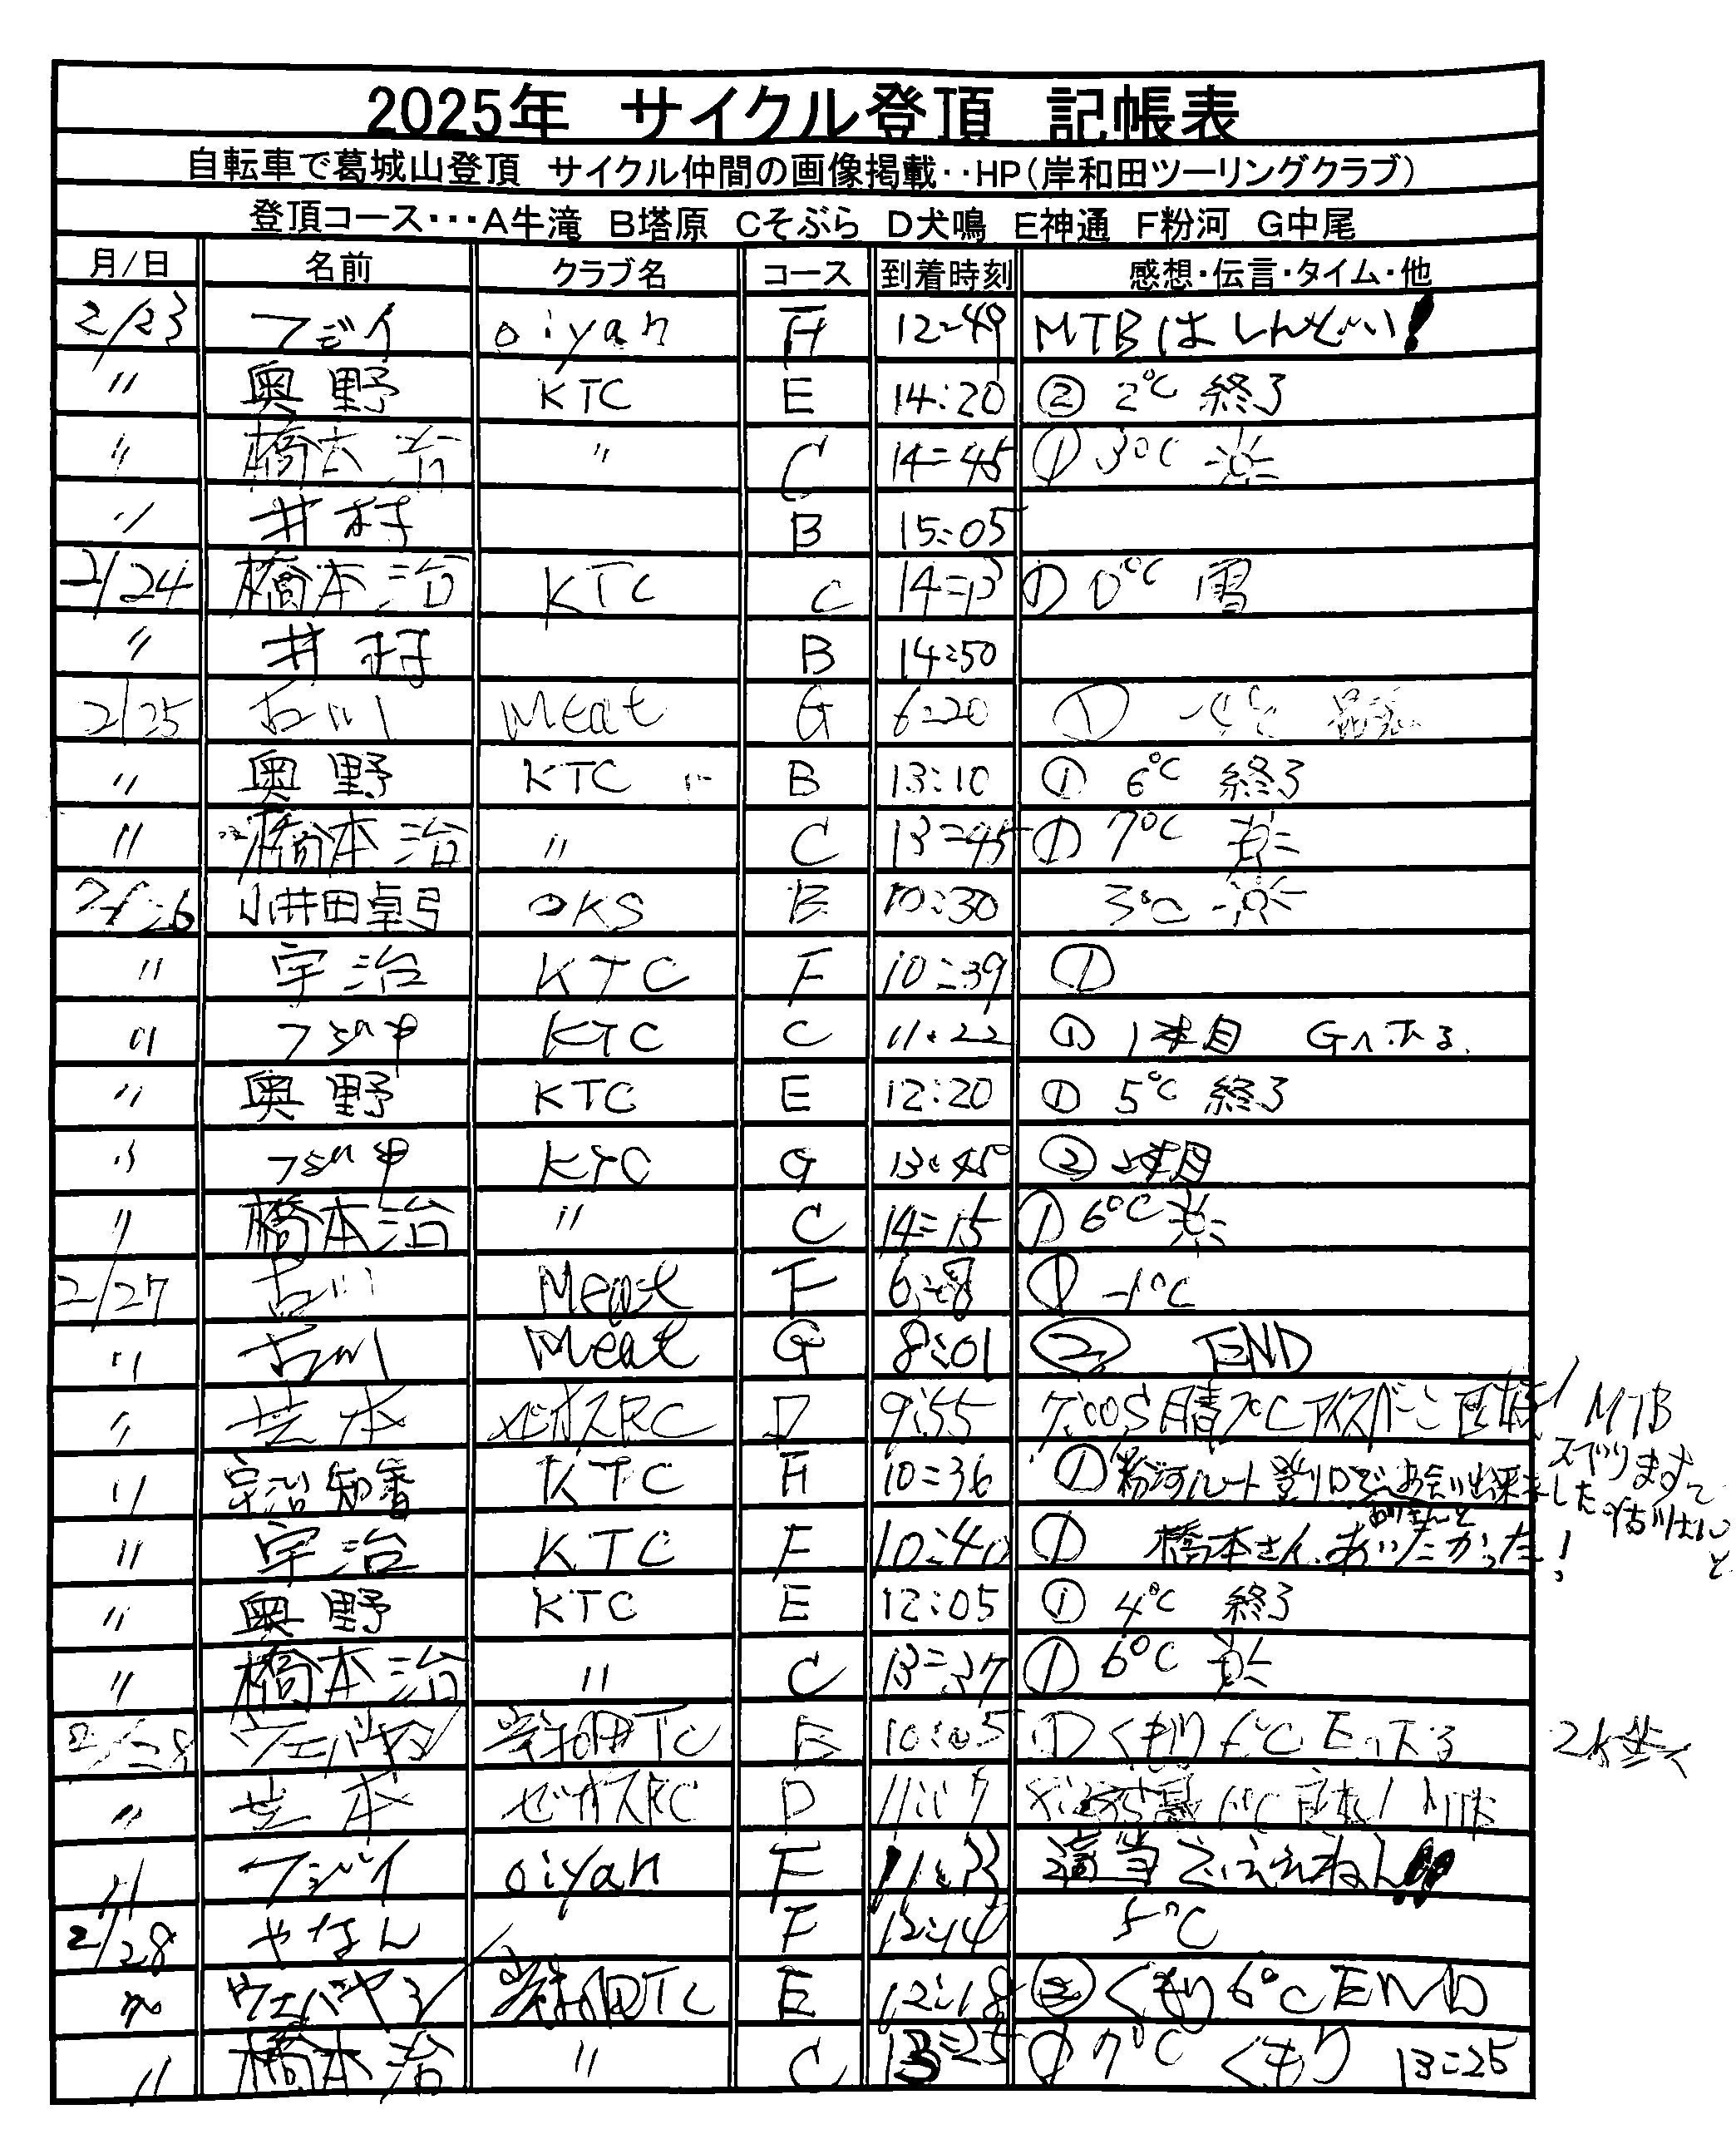 2025年 サイクル登頂 記帳表
自転車で葛城山登頂 サイクル仲間の画像掲載‥HP(岸和田ツーリングクラブ)
登頂コース･･･A牛滝 B塔原 Cそぶら D犬鳴 E神通 F粉河 G中尾
月/日 名前 クラブ名 コース 到着時刻 感想・伝言・タイム・他
2/23 フジイ oiyan 12:49 MTBはしんどい!
〃 奥野 KTC E 14:20 ② 2℃ 終了
〃 橋本治 〃 C 14=45 ① 3℃
〃 井村 B 15:05
2/24 橋本治 KTC C 14=13 ① 0℃ 雪
〃 井村 B 14:50
2/25 古川 Meat G 6:20 ①
〃 奥野 KTC B 13:10 ① 6℃ 終了
〃 橋本治 〃 C 13=45 ① 7℃
2/26 小井田卓弓 OKS B 10:30 3℃
〃 宇治 KTC F 10:39 ①
〃 フジ中 KTC C 11:22 ① 1本目 Gへ下る
〃 奥野 KTC E 12:20 ① 5℃ 終了
〃 フジ中 KTC G 13:45 ② 2本目
〃 橋本治 〃 C 14=15 ① 6℃
2/27 古川 Meat F ① -1℃
〃 古川 Meat G 8:01 ② END
〃 芝本 ゼオスRC D 9:55 MTB
〃 宇治知香 KTC 10=36 ① 粉河ルート登り口でお会い出来ました
〃 宇治 KTC F 10:40 ① 橋本さん、あいたかった!
〃 奥野 KTC E 12:05 ① 4℃ 終了
〃 橋本治 〃 C 13=37 ① 6℃
2/28 ウエバヤシ 岸和田TC E 10:05 ① くもり Eへ下る
〃 芝本 ゼオスRC D 11:17
〃 フジイ oiyan F 適当でいいねん!!
2/28 やなん F 12:14 5℃
〃 ウエバヤシ 岸和田TC E 12:18 ② くもり 6℃ END
〃 橋本治 〃 C 13=25 ① 7℃ くもり 13=25